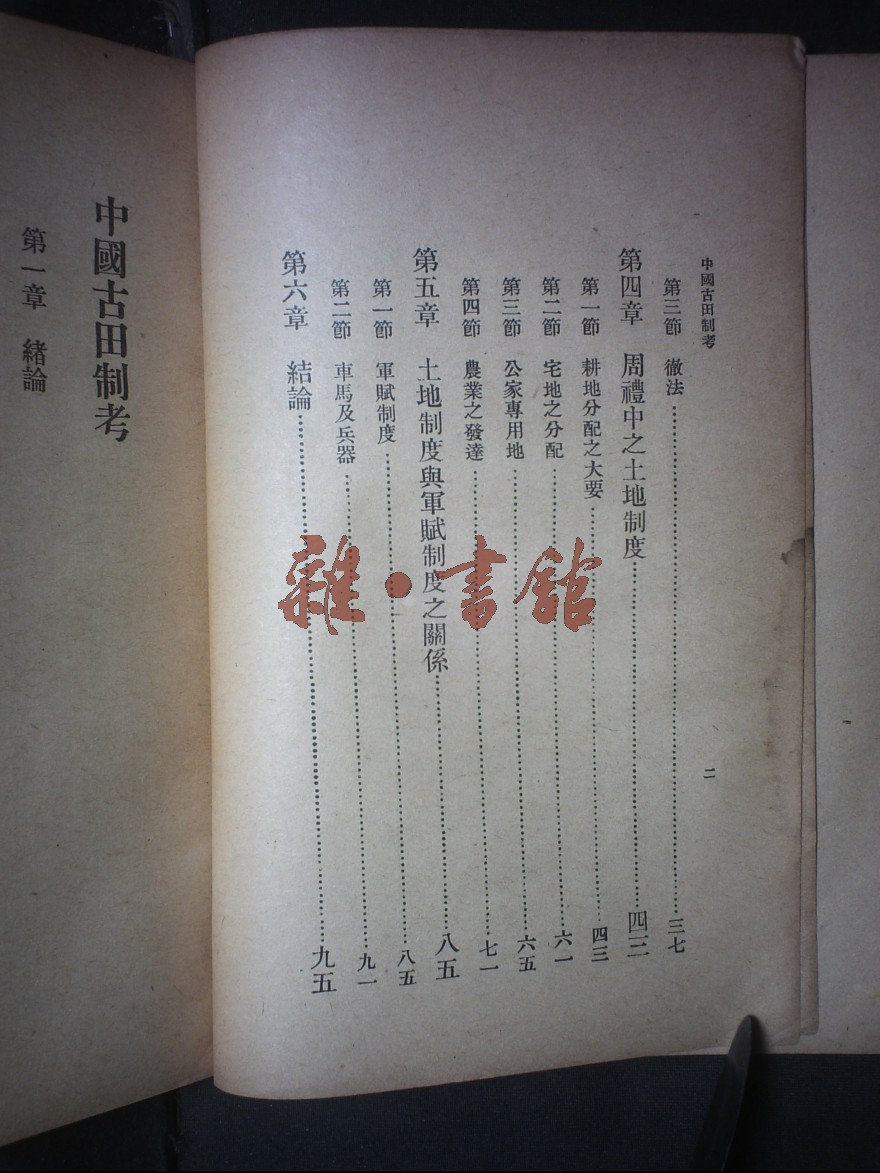 中國古田制考
二
第三節 徹法……三七
第四章 周禮中之土地制度……四三
第一節 耕地分配之大要……四三
第二節 宅地之分配……六一
第三節 公家專用地……六五
第四節 農業之發達……七一
第五章 土地制度與軍賦制度之關係……八五
第一節 軍賦制度……八五
第二節 車馬及兵器……九一
第六章 結論……九五
雜·書館
中國古田制考
第一章 緒論